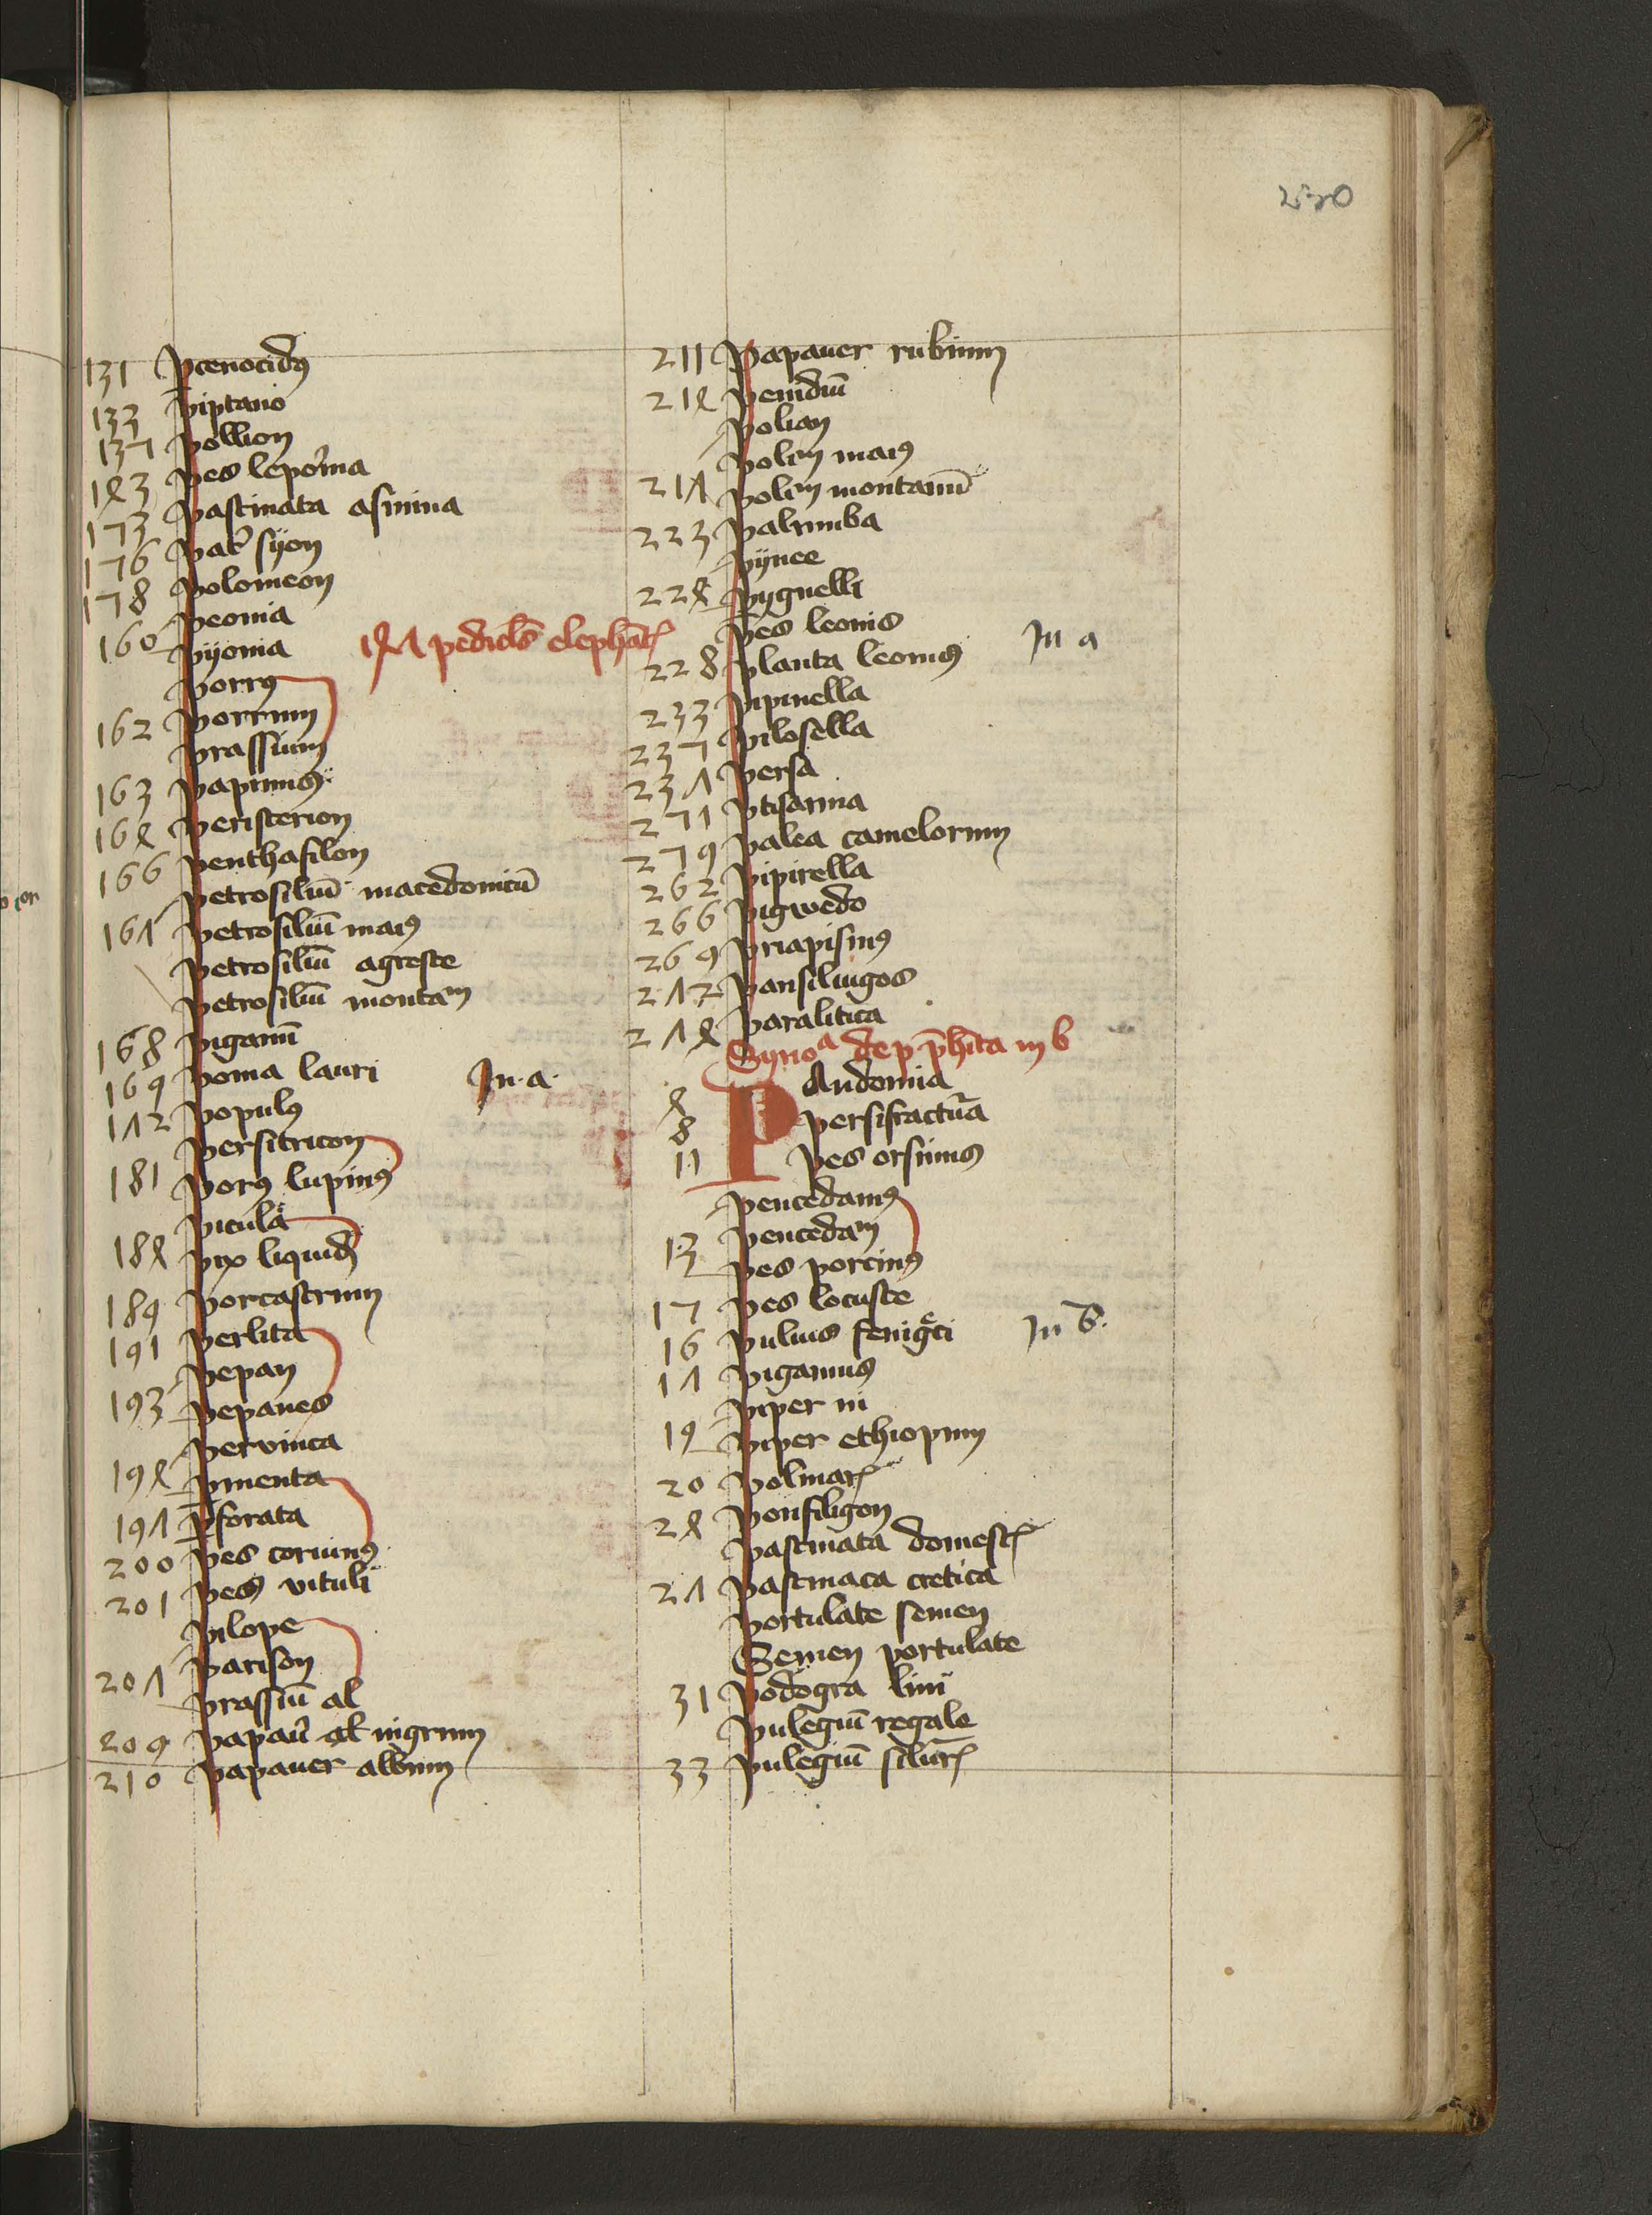 250
131 Pcenocidꝰ
133 piptano
135 pollion
143 pes leporina
153 pastinata asinina
156 pat̄ syon
158 polomeon
peonia
160 pyonia
147 pedicl̄s elephāt
porrꝰ
162 porrum
prassium
163 paprinus
164 peristerion
166 penthafilon
petrosiliū macedonicū
167 petrosiliū maiꝰ
petrosiliū agreste
petrosiliū montan
168 piganū
169 poma lauri In a
172 populꝰ
persitricon
181 porꝰ lupinꝰ
picula
184 pix liquid
189 porcastrum
191 perlita
pepan
193 pepanes
pervinca
194 pmenta
197 ꝑforata
200 pes coruinꝰ
201 pes vituli
pilope
207 parison
prassiū al
209 papaū al nigrum
210 papauer album
211 Papauer rubium
214 penidiū
polian
polen maiꝰ
217 polen montanū
223 palumba
pynee
224 pygnelli
pes leonis
228 planta leonius In a
233 pipinella
235 pilosella
237 persa
251 ptisanna
259 palea camelorum
262 pipirella
266 pigwedo
269 priapismꝰ
272 pansiliugos
274 paralitica
Synoᵃ de p p̄hīta in b
4 PAndonia
8 persifractūa
11 pes orsinus
pencedanus
13 pencedam
pes porcinꝰ
15 pes locuste
16 puluis feniḡci In b.
17 pigamus
piper ni
19 piper ethiopum
20 polmar
24 ponfiligon
pastinata domest
27 pastinaca cretica
portulate semen
Semen portulate
31 podogra lini
pulegiū regale
33 pulegiū silur